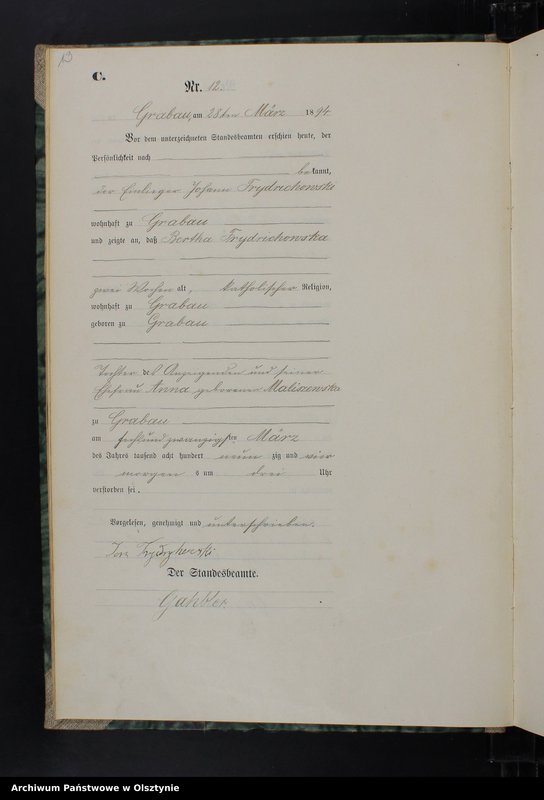 13
C.
Nr. 12
Grabau, am 28ten März 1894
Vor dem unterzeichneten Standesbeamten erschien heute, der
Persönlichkeit nach
bekannt,
der Einlieger Johann Frydrichowski
wohnhaft zu Grabau
und zeigte an, daß Bertha Frydrichowska
zwei Wochen alt, katholischer Religion,
wohnhaft zu Grabau
geboren zu Grabau
Tochter des Anzeigenden und seiner
Ehefrau Anna geborener Maliszewska
zu Grabau
am sechsundzwanzigsten März
des Jahres tausend acht hundert neunzig und vier
morgens um drei Uhr
verstorben sei.
Vorgelesen, genehmigt und unterschrieben.
Der Standesbeamte.
Archiwum Państwowe w Olsztynie